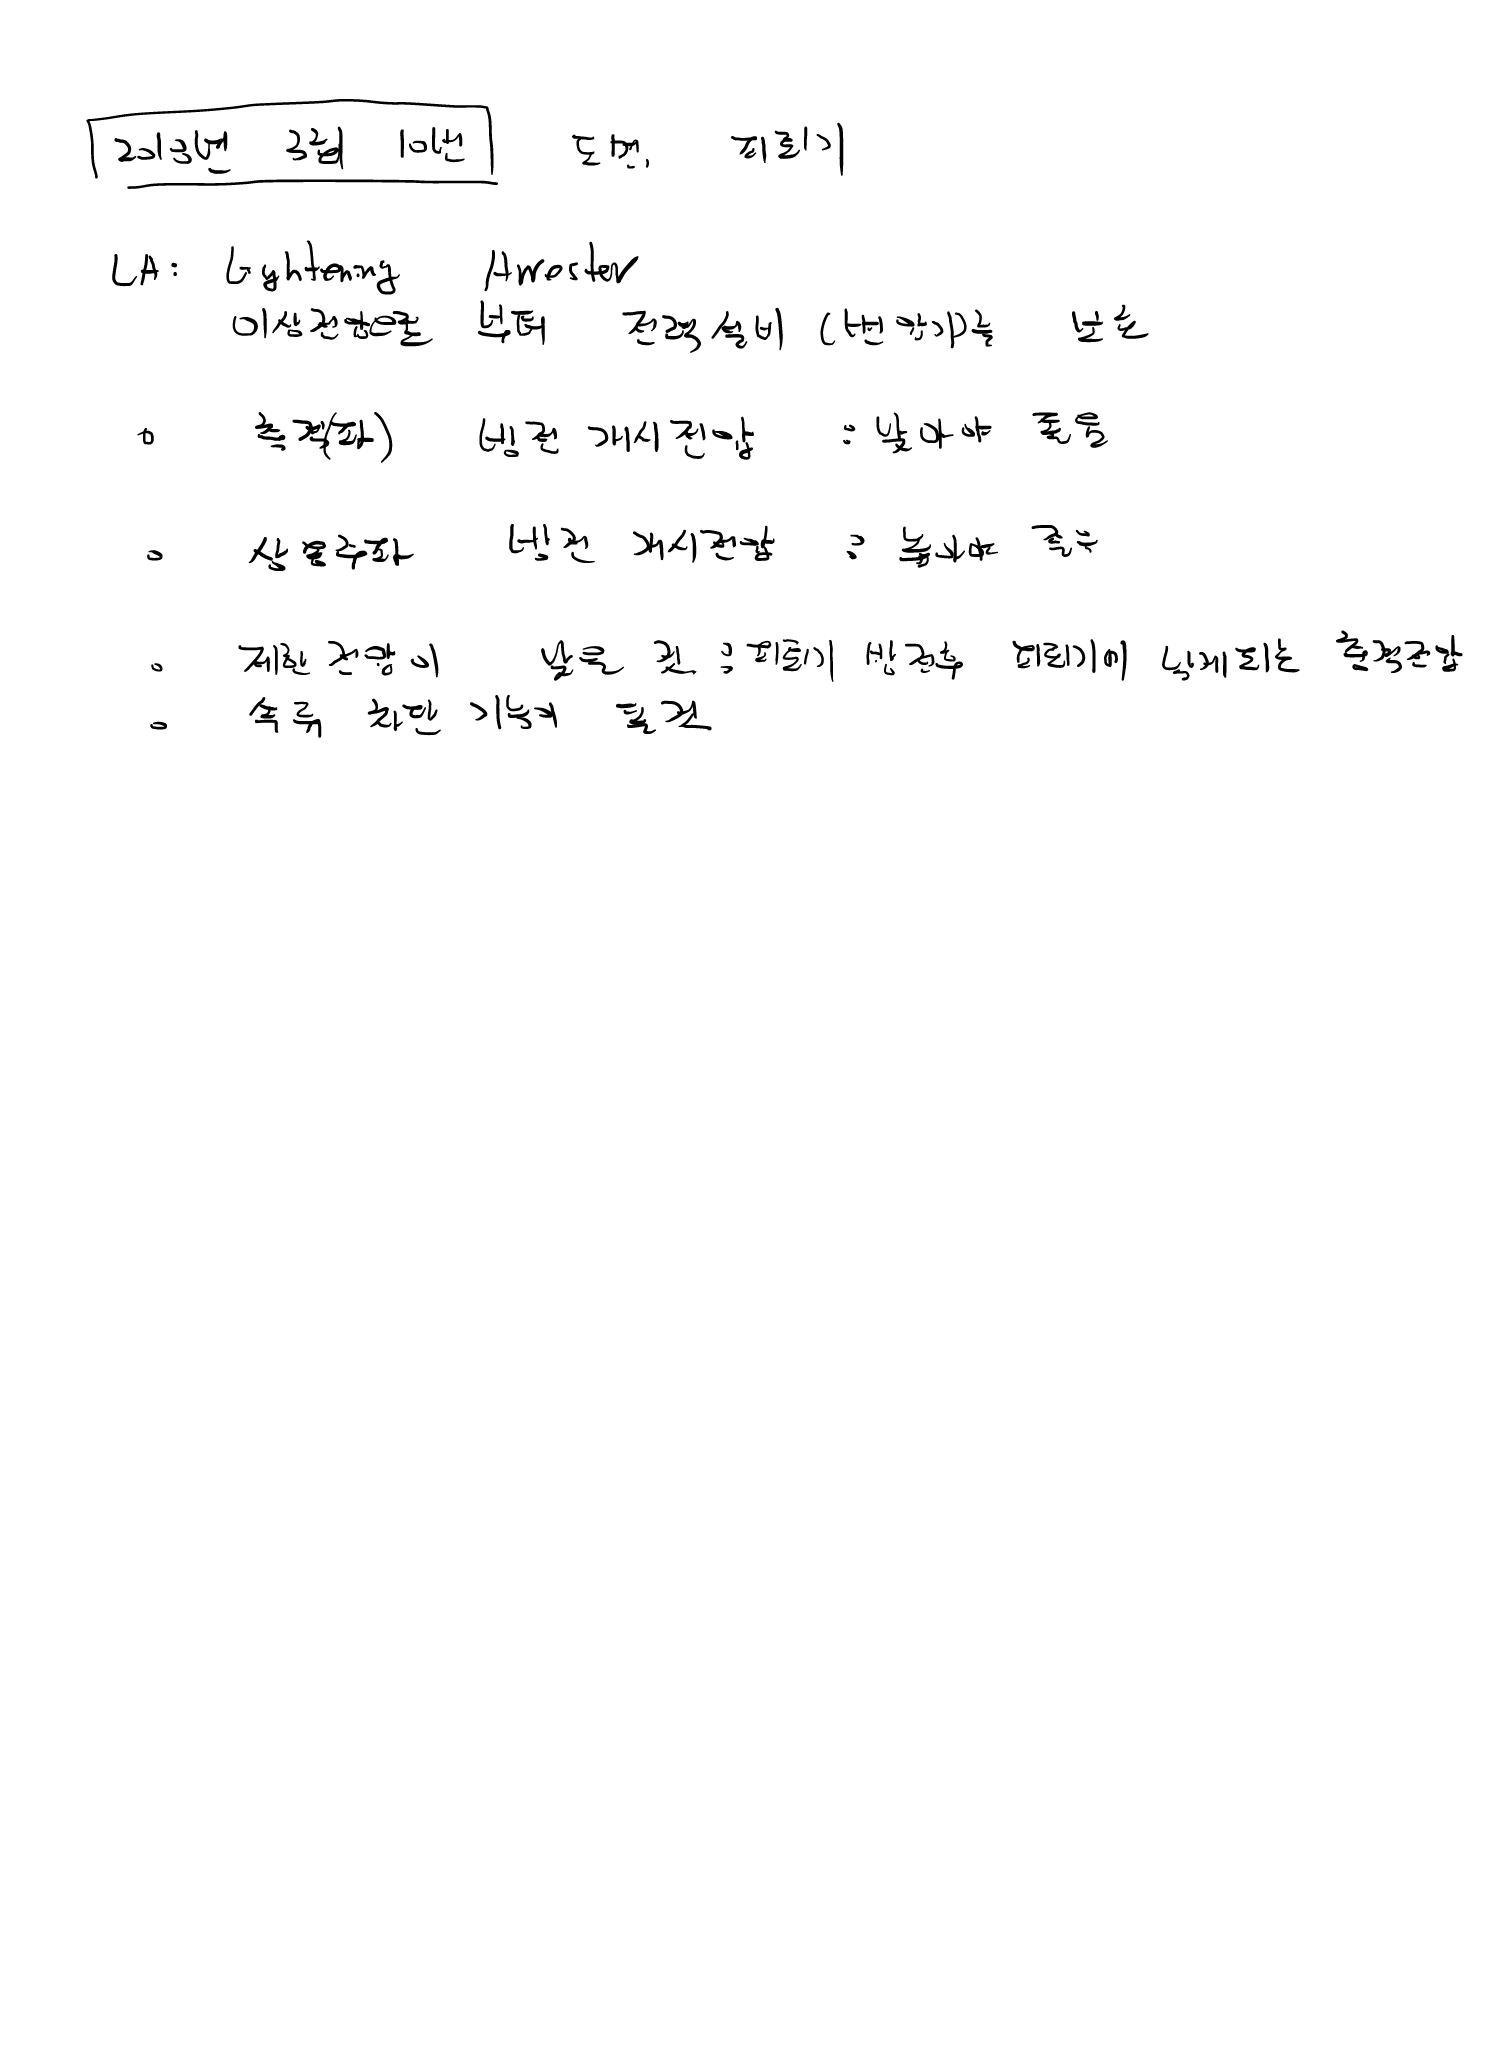 2013년 3회 10번 도면, 피뢰기
LA: Lightening Arrester
이상전압으로 부터 전력설비 (변압기)를 보호
o 충격(파) 방전 개시전압 : 낮아야 좋음
o 상용주파 방전 개시전압 : 높아야 좋음
o 제한전압이 낮을 것 : 피뢰기 방전후 피뢰기에 남게되는 충격전압
o 속류 차단 기능이 될 것